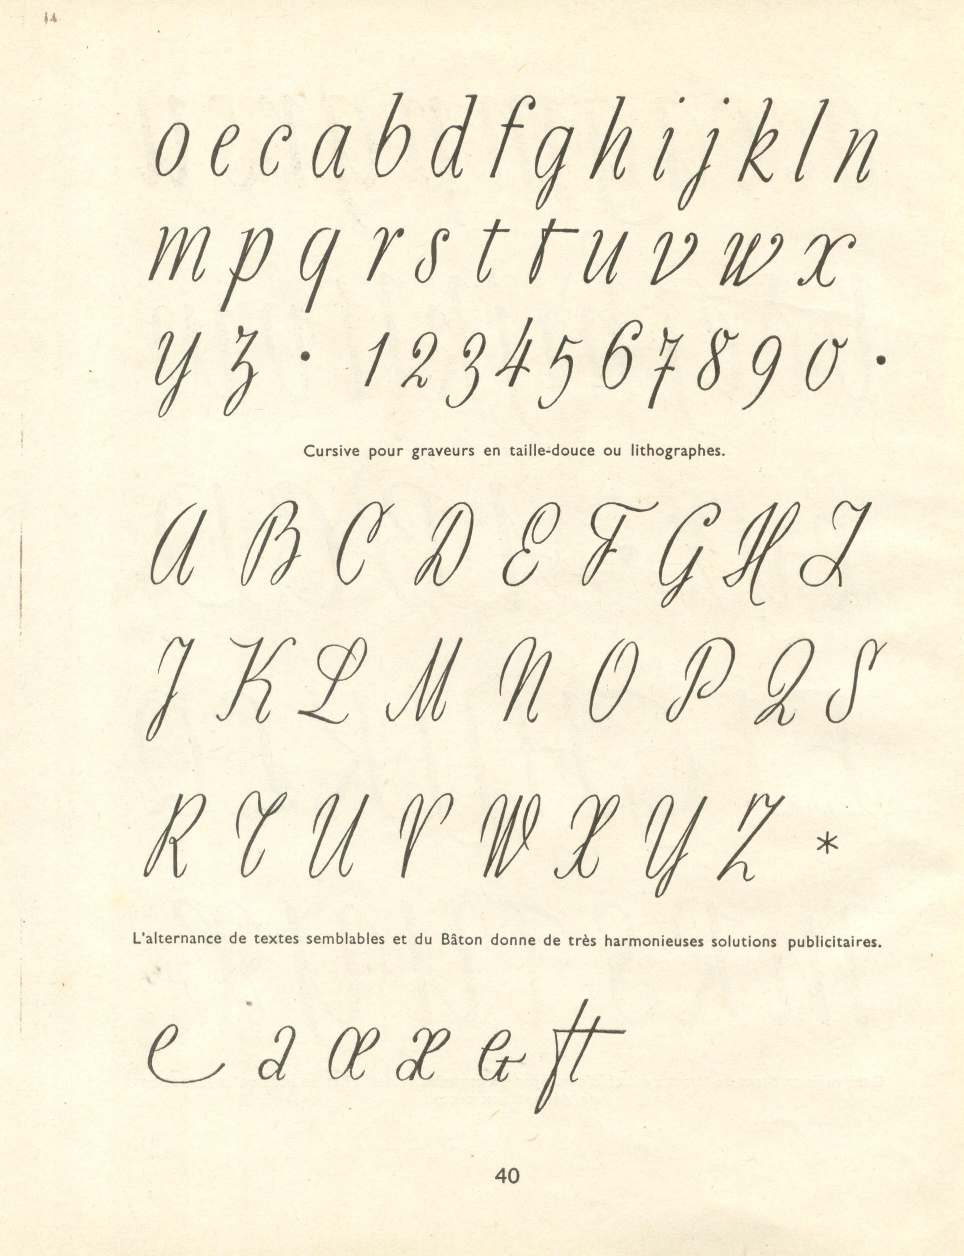 o e c a b d f g h i j k l n
m p q r s t t u v w x
y z · 1 2 3 4 5 6 7 8 9 0 ·
Cursive pour graveurs en taille-douce ou lithographes.
A B C D E F G H I
J K L M N O P Q S
R T U V W X Y Z *
L'alternance de textes semblables et du Bâton donne de très harmonieuses solutions publicitaires.
e a œ æ & ft
40